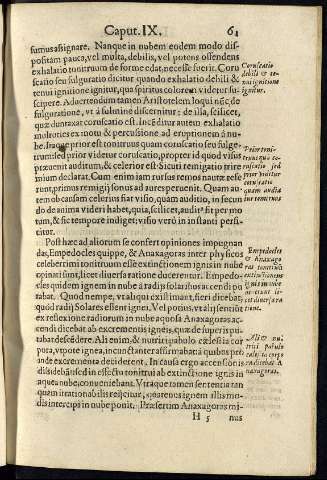 Caput. IX. 61
sumus assignare. Nanque in nubem eodem modo dis-
positam pauca, vel multa, debilis, vel potens offendens
exhalatio tonitruum de forme edat, necesse fuerit. Coru
scatio seu fulguratio dicitur quando exhalatio debilis &
tenui ignitione ignitur, qua spiritus colorem videtur su-
scipere. Aduertendum tamen Aristotelem loqui nunc de
fulguratione, vt à fulmine discernitur: de illa, scilicet,
quæ duntaxat coruscatio est. Incenditur autem exhalatio
In ordine
prior est tonitruus quam coruscatio seu fulge-
trum: sed prior videtur coruscatio, propter id quod visus
præuenit auditum, & celerior est: Sicuti remigatio prire
mium declarat. Cum enim iam rursus remos nautæ refe
runt, primus remigij sonus ad aures peruenit. Quam au-
tem ob causam celerius fiat visio, quam auditio, in secun
do de anima videri habet, quia, scilicet, auditio fit per mo
tum, & sic tempore indiget: visio verò in instanti persi-
citur.
Post hæc ad aliorum se confert opiniones impugnan
das, Empedocles quippe, & Anaxagoras inter physicos
celeberrimi tonitruum esse extinctionem ignis in nube
opinati sunt, licet diuersa ratione ducerentur. Empedo-
cles quidem ignem in nube à radijs solaribus accendi pu
tabat. Quod nempe, vt aliqui existimant, fieri dicebat,
quod radij Solares essent ignei. Vel potius, vt alij sentiũt
ex reflexione radiorum in nube aquosa Anaxagoras ac-
cendi dicebat ab excrementis ignis, quæ de superis pu-
tabat descẽdere. Ali enim, & nutriri pabulo cælestia cor
pora, vt pote ignea, inconstanter affirmabat: à quibus pro
inde excrementa deciderent. In causa ergo accensionis
diffidebant: sed in effectu tonitrui ab extinctione ignis in
aquea nube, conueniebant. Vtraque tamen sententia tan
quam irrationabilis reijcitur,
dis intercipi in nube ponit. Præsertim Anaxagoras mi-
H 5 nus
Coruscatio
debili & te-
nui ignitione
ignitur.
Prior toni-
truus quo co-
ruscatio sed
prior videtur
coruscatio
quàm audia
tur tonitruus
Empedocles
& Anaxago
ras tonitruũ
extinctionem
ignis in nube
licet diuersa ra
tione.
Ali & nu-
triri pabulo
cælestia corpo
ra dicebat A-
naxagoras.